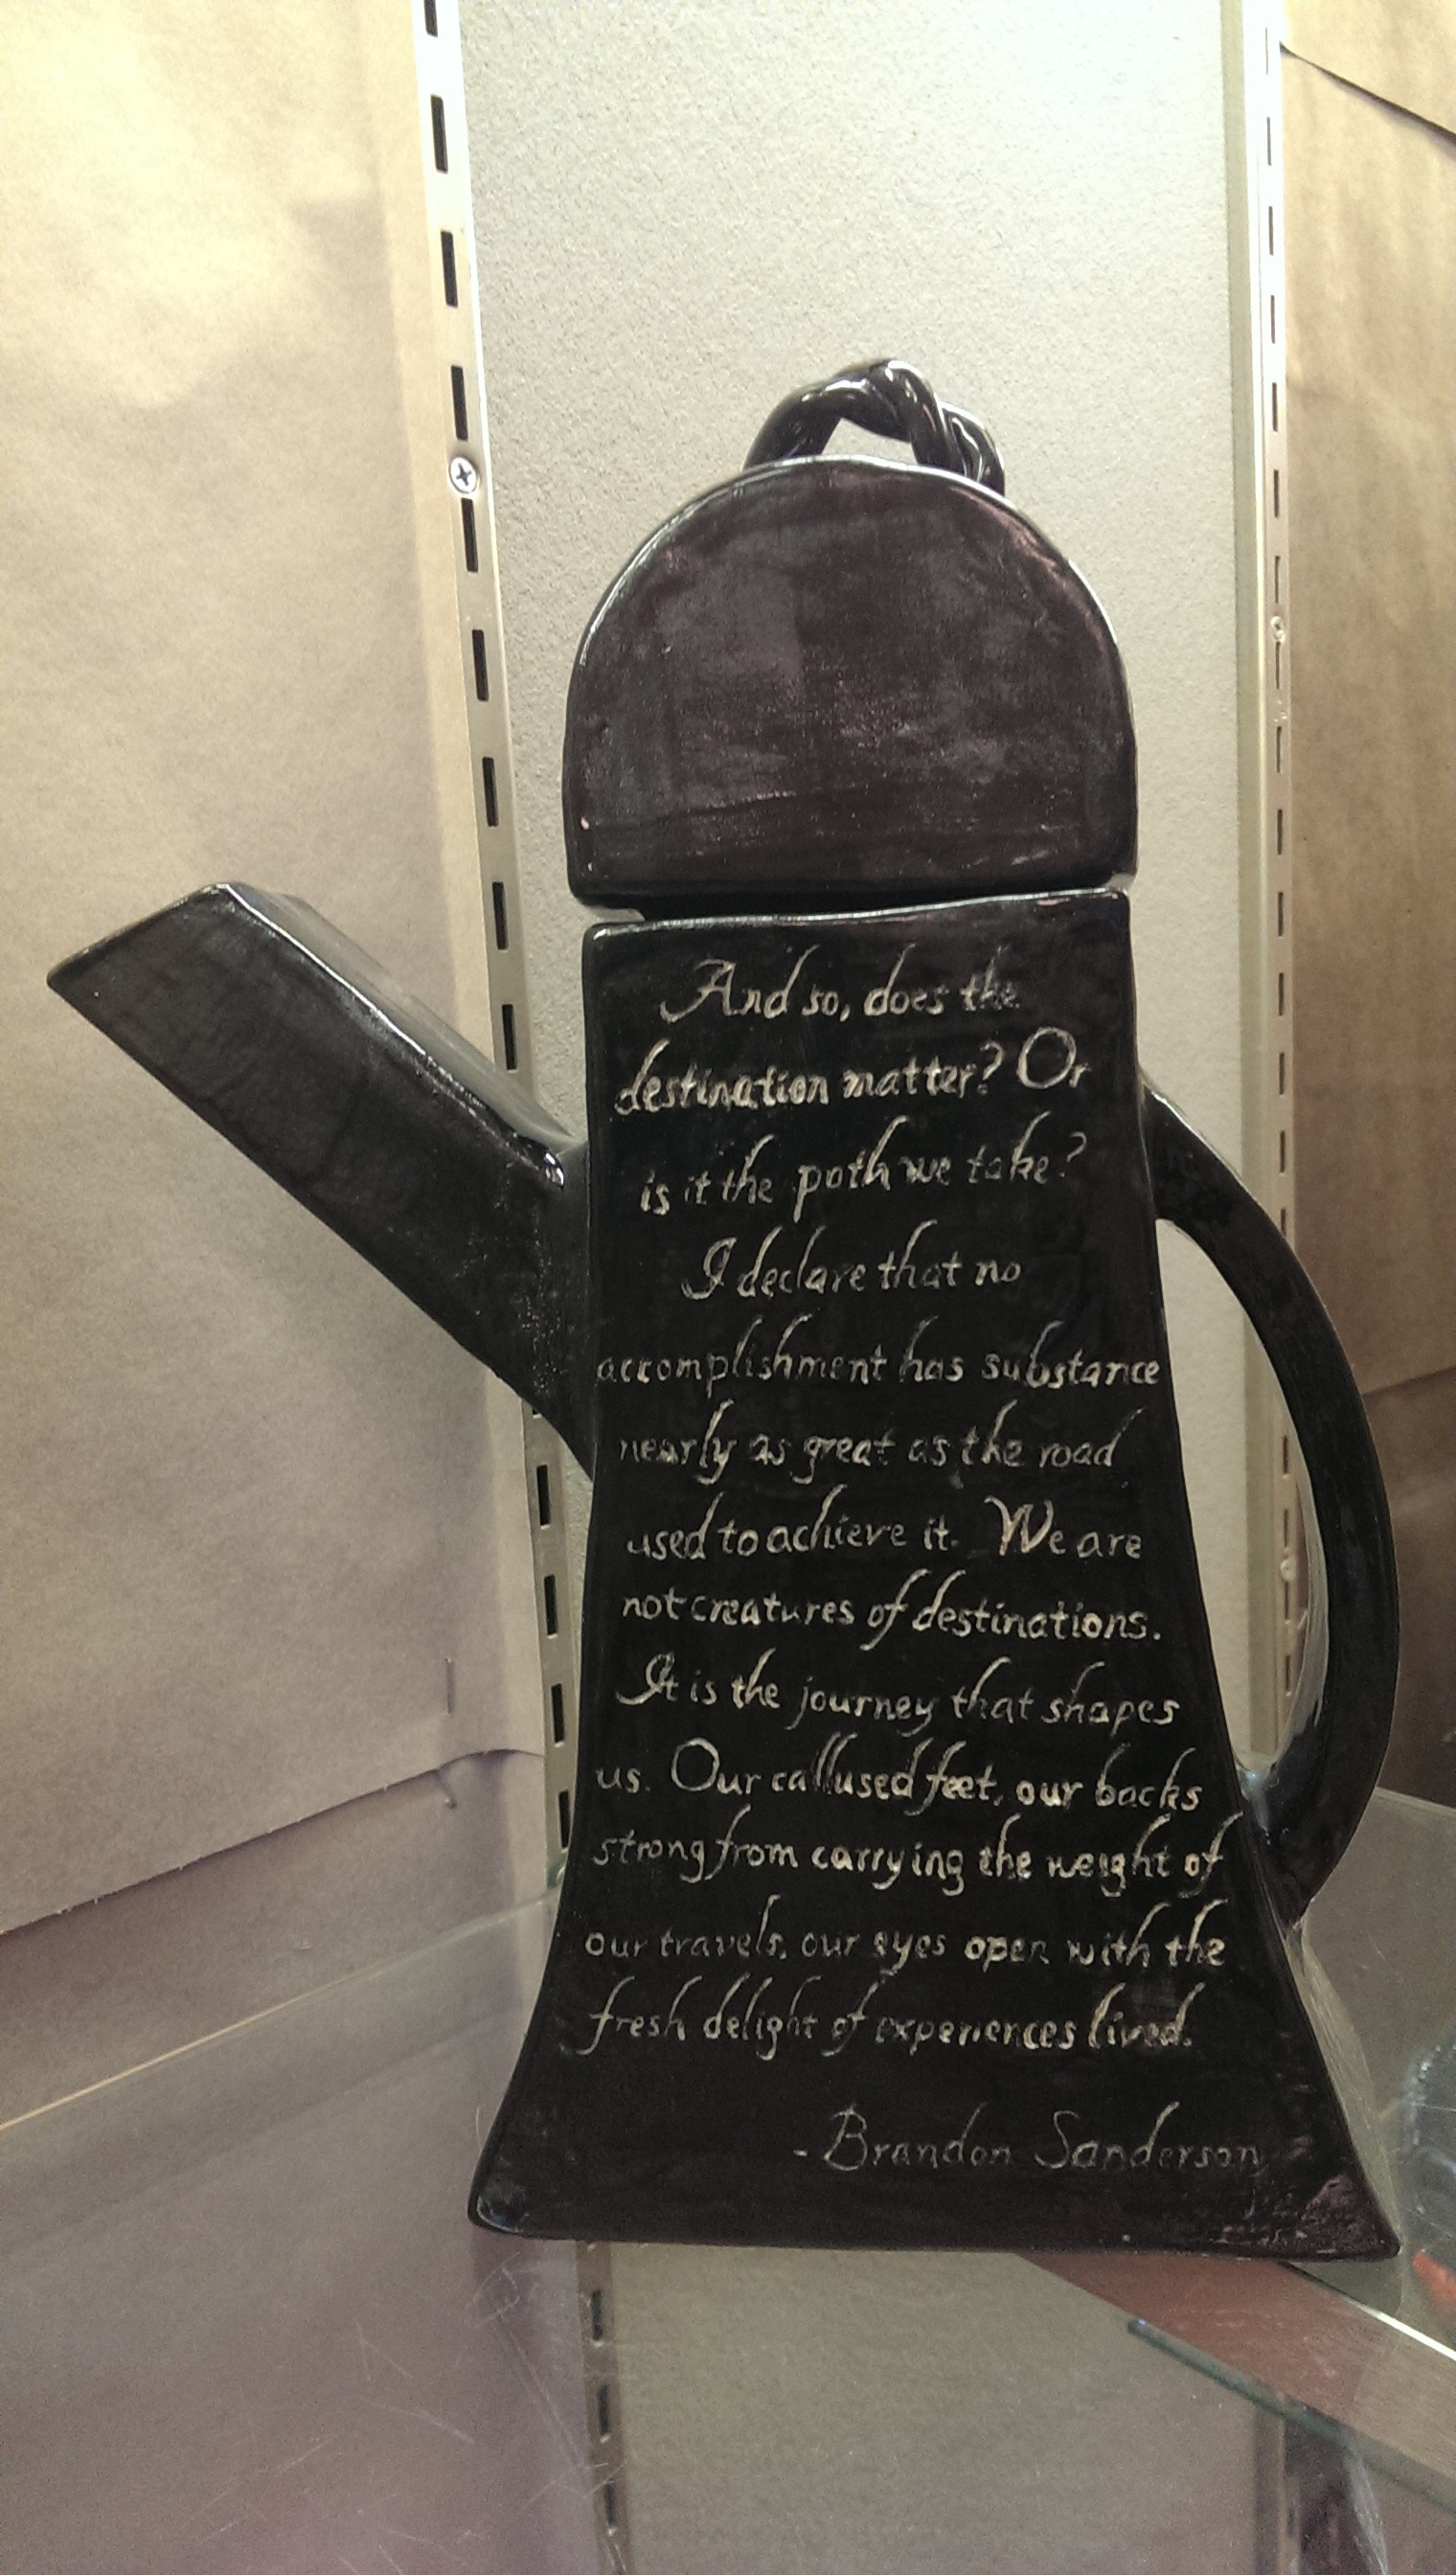 And so, does the
destination matter? Or
is it the path we take?
I declare that no
accomplishment has substance
nearly as great as the road
used to achieve it. We are
not creatures of destinations.
It is the journey that shapes
us. Our callused feet, our backs
strong from carrying the weight of
our travels, our eyes open with the
fresh delight of experiences lived.
- Brandon Sanderson